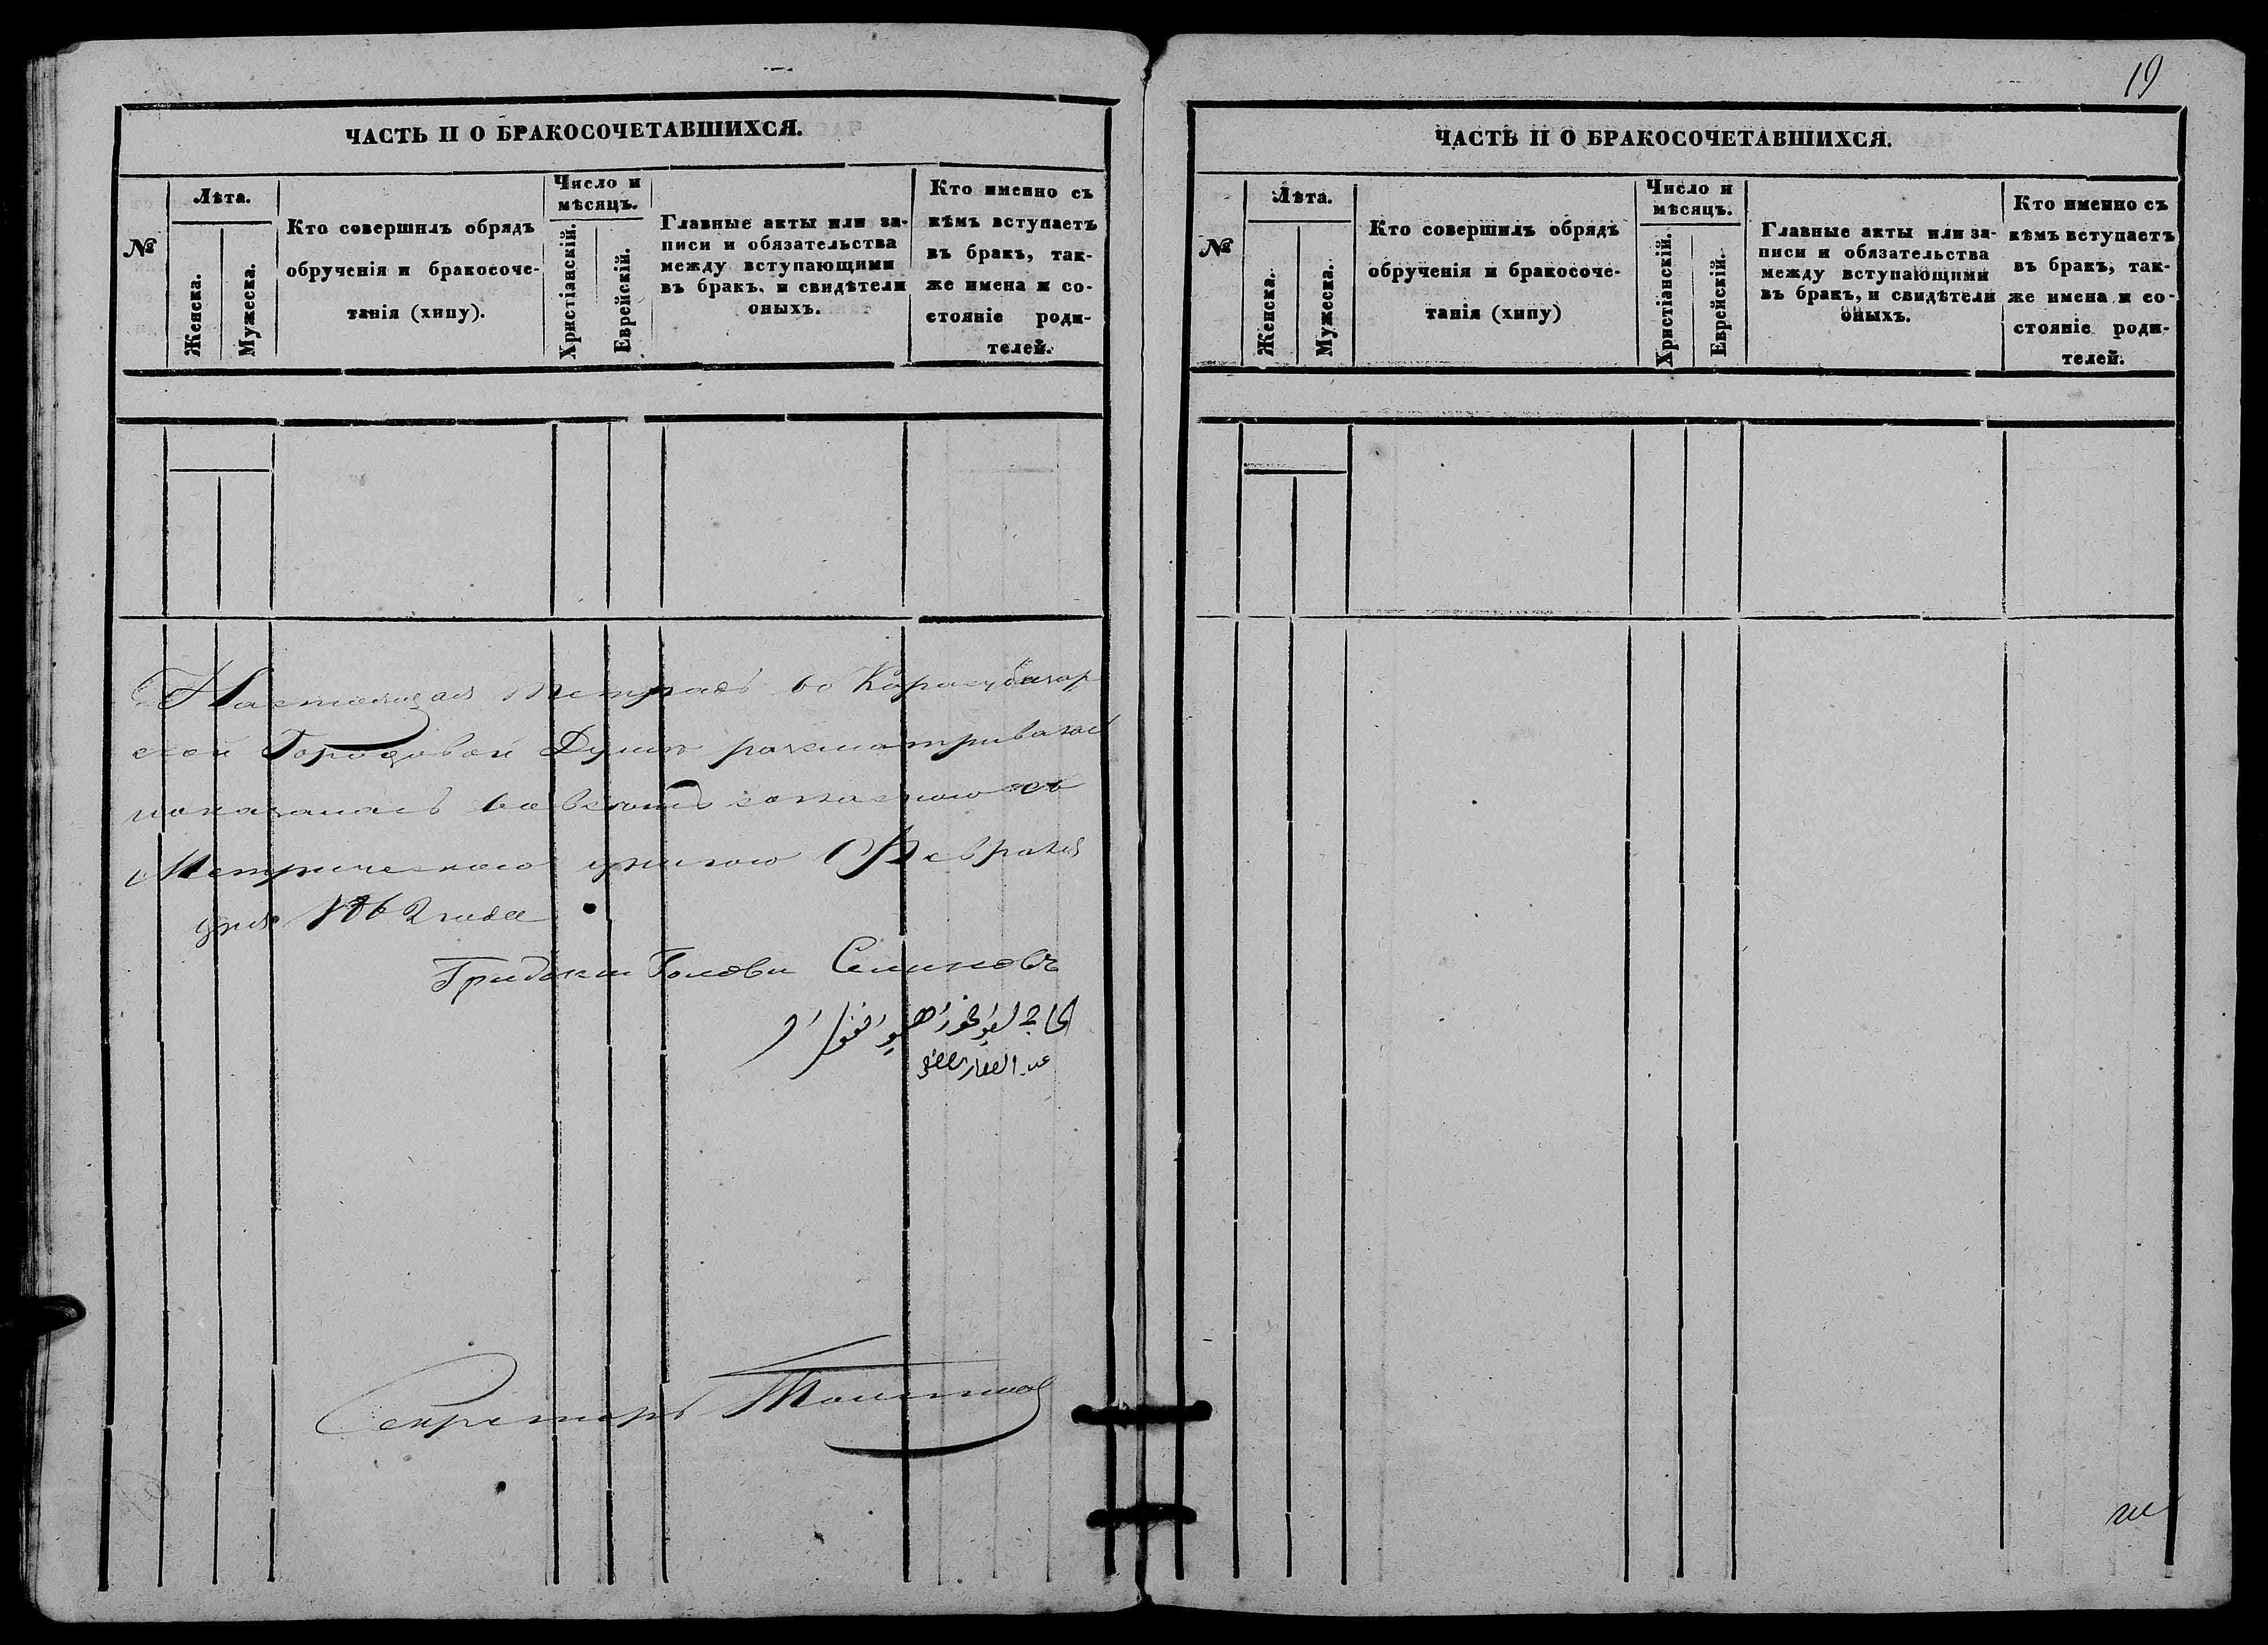 ЧАСТЬ II О БРАКОСОЧЕТАВШИХСЯ.
№
Лѣта.
Женска.
Мужеска.
Кто совершилъ обрядъ
обрученія и бракосоче-
танія (хипу).
Число и
мѣсяцъ.
Христіанскій.
Еврейскій.
Главные акты или за-
писи и обязательства
между вступающими
въ бракъ, и свидѣтели
оныхъ.
Кто именно съ
кѣмъ вступаетъ
въ бракъ, так-
же имена и со-
стояніе роди-
телей.
Настоящая тетрадь во Карасубазар
ской Городовой Думѣ разсматривалась
показалась во всемъ согласною съ
Метрическою книгою Февраля
дня 1862 года
Голова
Секретарь
19
ЧАСТЬ II О БРАКОСОЧЕТАВШИХСЯ.
№
Лѣта.
Женска.
Мужеска.
Кто совершилъ обрядъ
обрученія и бракосоче-
танія (хипу)
Число и
мѣсяцъ.
Христіанскій.
Еврейскій.
Главные акты или за-
писи и обязательства
между вступающими
въ бракъ, и свидѣтели
оныхъ.
Кто именно съ
кѣмъ вступаетъ
въ бракъ, так-
же имена и со-
стояніе роди-
телей.